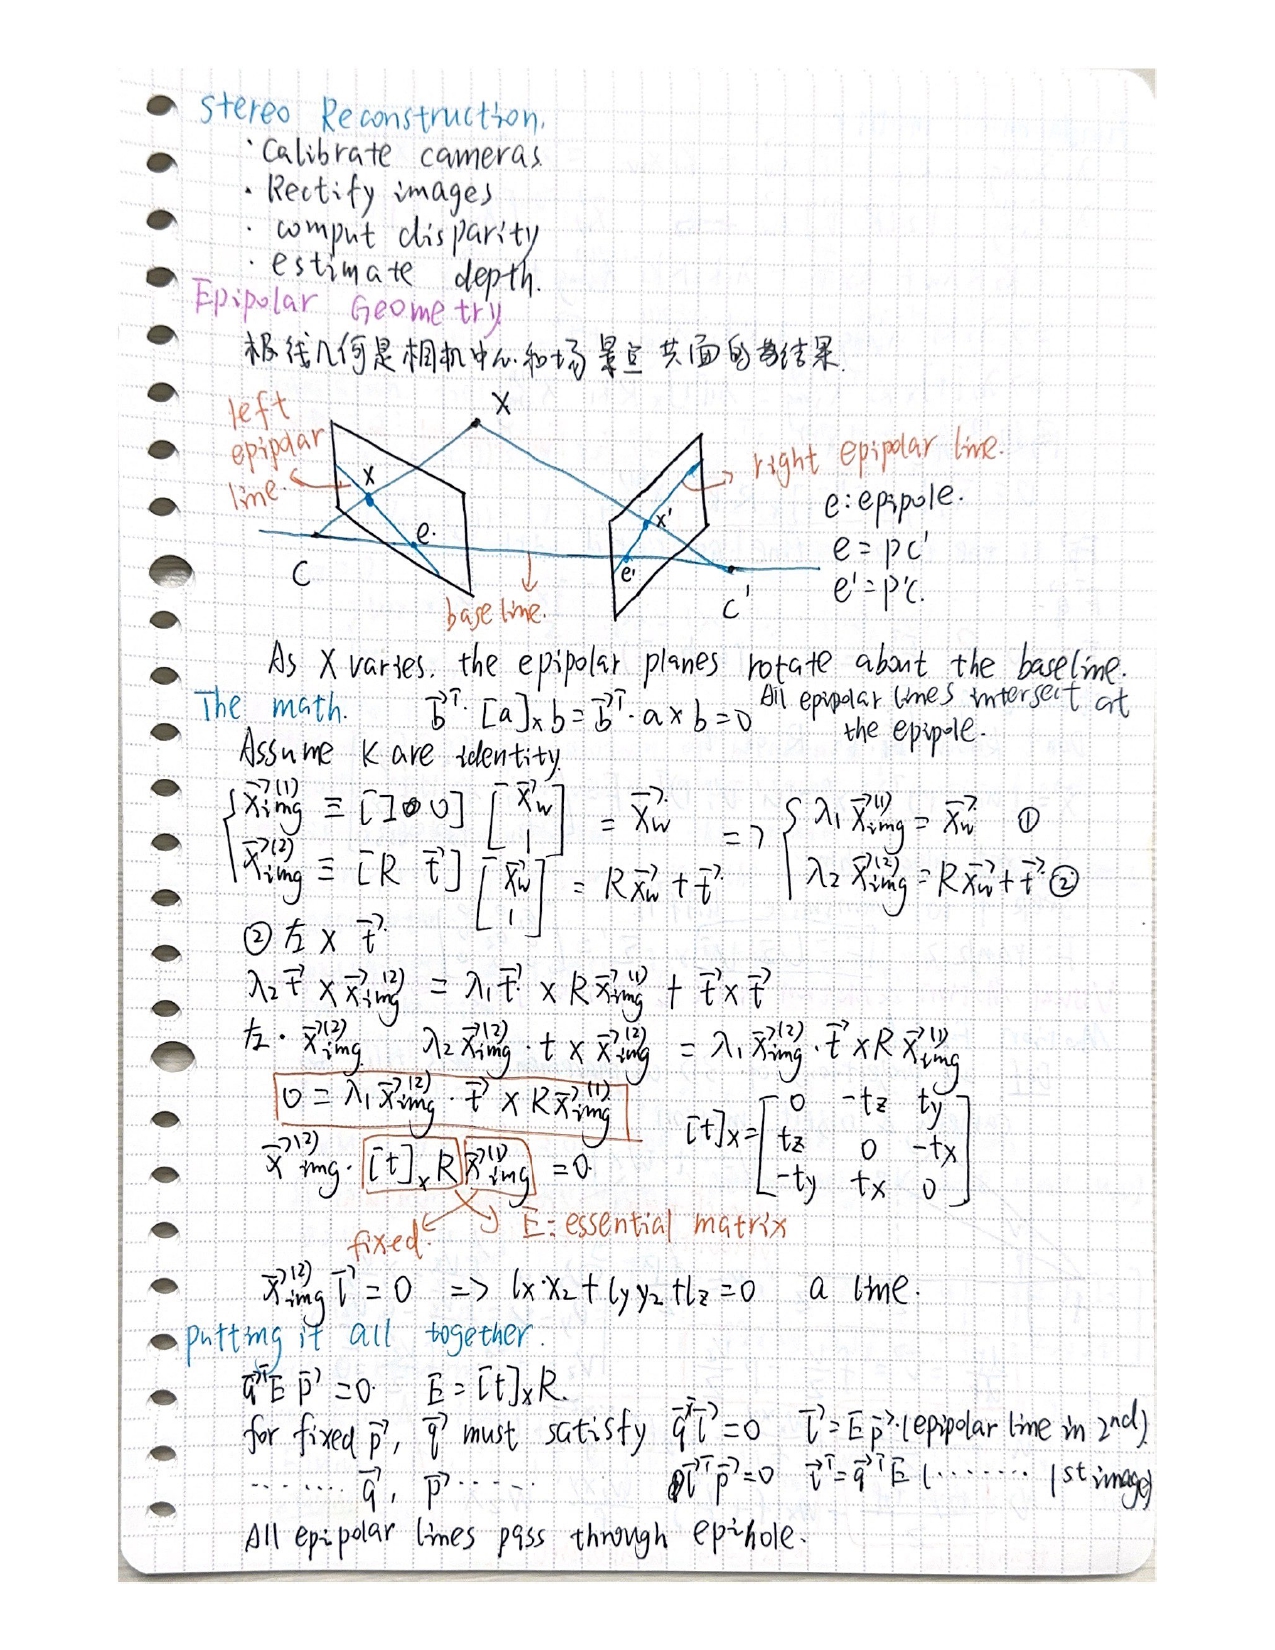 Stereo Reconstruction.
· Calibrate cameras
· Rectify images
· comput disparity
· estimate depth.
Epipolar Geometry
极线几何是相机中心和场景点共面的结果.
left epipolar line.
X
x
e.
C
baseline.
x'
e'
C'
right epipolar line.
e: epipole.
e = pc'
e' = p'c.
As X varies. the epipolar planes rotate about the baseline.
All epipolar lines intersect at the epipole.
The math. b⃗ᵀ·[a]ₓb = b⃗ᵀ·a×b = 0
Assume K are identity.
{ x⃗img⁽¹⁾ ≡ [I 0] [x⃗w 1] = x⃗w => { λ₁x⃗img⁽¹⁾ = x⃗w ①
x⃗img⁽²⁾ ≡ [R t⃗] [x⃗w 1] = Rx⃗w + t⃗ λ₂x⃗img⁽²⁾ = Rx⃗w + t⃗ ②
② 左 × t⃗
λ₂t⃗ × x⃗img⁽²⁾ = λ₁t⃗ × Rx⃗img⁽¹⁾ + t⃗ × t⃗
左· x⃗img⁽²⁾ λ₂x⃗img⁽²⁾ · t × x⃗img⁽²⁾ = λ₁x⃗img⁽²⁾ · t⃗ × Rx⃗img⁽¹⁾
0 = λ₁x⃗img⁽²⁾ · t⃗ × Rx⃗img⁽¹⁾
x⃗⁽²⁾img · [t]ₓR x⃗img⁽¹⁾ = 0
[t]x = [0 -tz ty
tz 0 -tx
-ty tx 0]
fixed.
E: essential matrix
x⃗img⁽²⁾ l⃗ = 0 => lx·x₂ + ly y₂ + lz = 0 a line.
putting it all together.
q⃗ᵀE p⃗ = 0. E = [t]ₓR.
for fixed p⃗, q⃗ must satisfy q⃗ᵀl⃗ = 0 l⃗ = Ep⃗. (epipolar line in 2nd)
........ q⃗, p⃗ ...... l⃗ᵀp⃗ = 0 l⃗ᵀ = q⃗ᵀE (........ 1st image)
All epipolar lines pass through epihole.